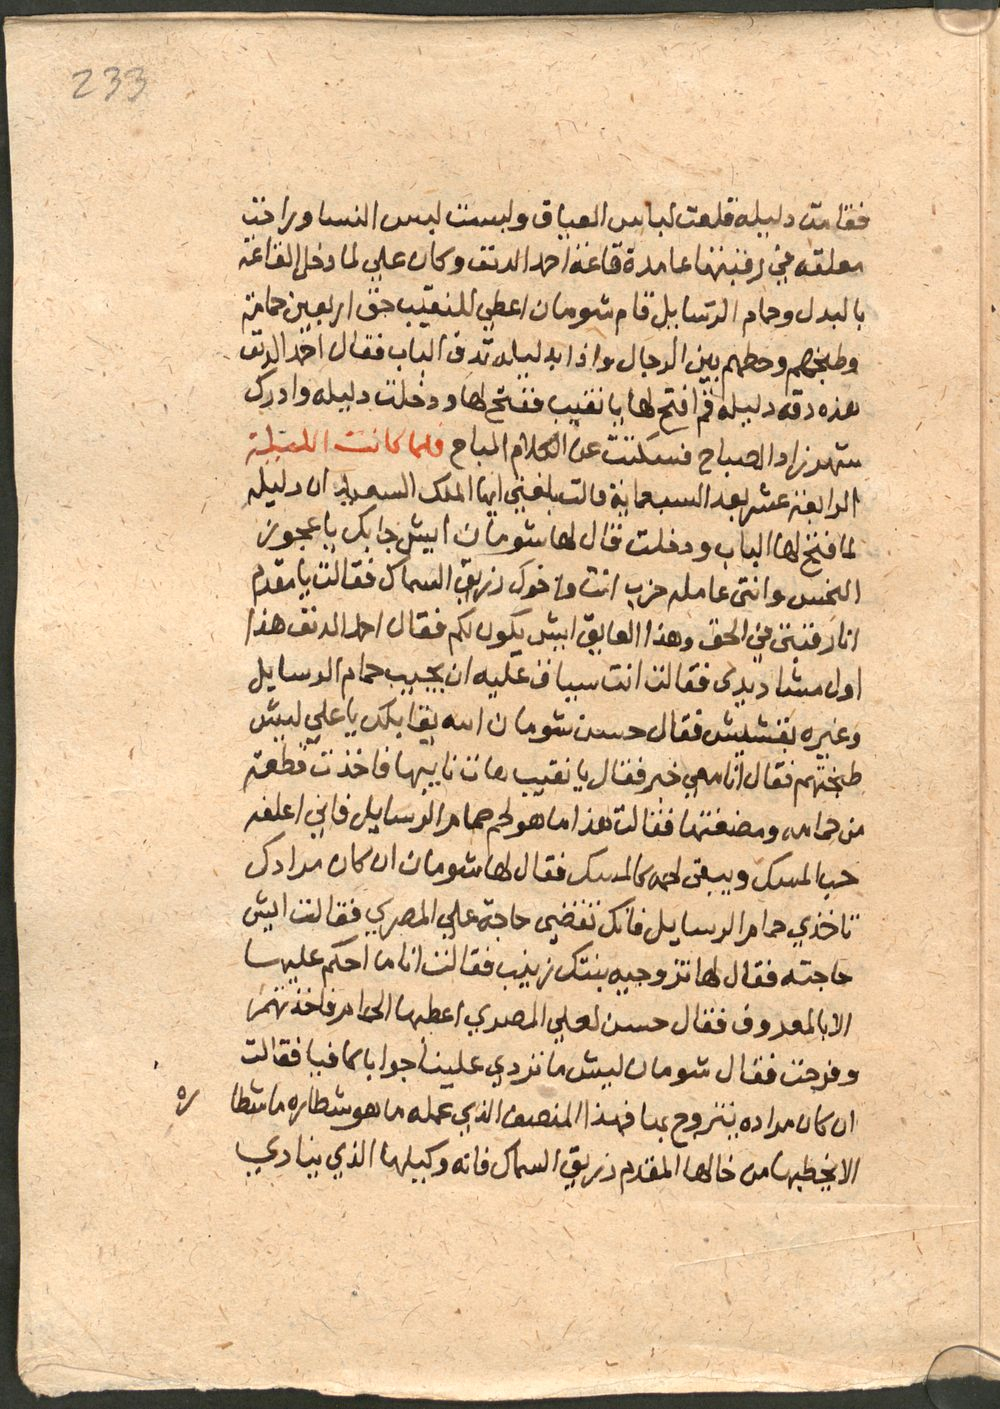 233
فقامت دليله قلعت لباس العياق ولبست لبس النسا وراحت
معلقه في رقبتها عامدة قاعة احمد الدنف وكان علي لما دخل القاعة
بالبدل وحمام الرسايل قام شومان اعطي للنقيب حق اربعين حمامة
وطبخهم وحطهم بين الرجال واذا بدليله تدق الباب فقال احمد الدنف
هذه دقه دليله قم افتح لها يا نقيب ففتح لها ودخلت دليله وادرك
شهرزاد الصباح فسكتت عن الكلام المباح فلما كانت الليلة
الرابعة عشر بعد السبعماية قالت بلغني ايها الملك السعيد ان دليله
لما فتح لها الباب ودخلت قال لها شومان ايش جابك يا عجوز
النحس وانتي عامله حزب انت واخوك زريق السماك فقالت يا مقدم
انا رقبتي في الحق وهذا العايق ايش يكون لكم فقال احمد الدنف هذا
اول مشاديدي فقالت انت سياق عليه ان يجيب حمام الرسايل
وغيره بقشيش فقال حسن شومان الله يقابلك يا علي ليش
طبختهم فقال انا معي خبر فقال يا نقيب هات نايبها فاخذت قطعة
من حمامه ومضغتها فقالت هذا ما هو لحم حمام الرسايل فاني اعلفه
حب المسك ويبقي لحمه كالمسك فقال لها شومان ان كان مرادك
تاخذي حمام الرسايل فانك تقضي حاجة علي المصري فقالت ايش
حاجته فقال لها تزوجيه بنتك زينب فقالت انا ما احكم عليها
الا بالمعروف فقال حسن لعلي المصري اعطها الحمام فاخذتهم
وفرحت فقال شومان ليش ما تردي علينا جوابا كافيا فقالت
ان كان مراده يتزوج بها فهذا المنصف الذي عمله ما هو شطاره ما شطا
ره
الا يخطبها من خالها المقدم زريق السماك فانه وكيلها الذي ينادي